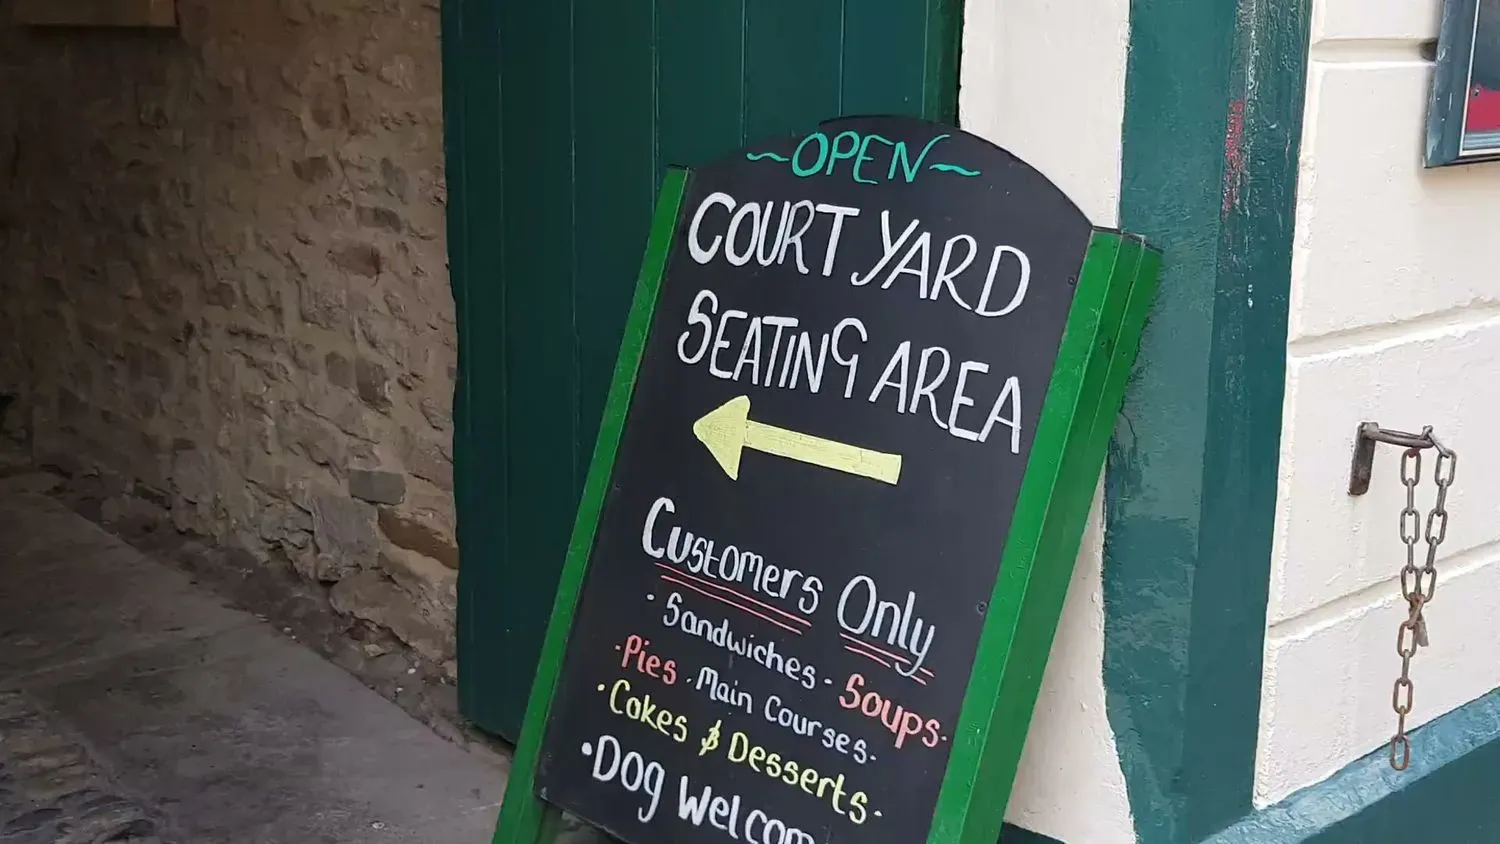 ~OPEN~
COURT YARD
SEATING AREA
Customers Only
· Sandwiches · Soups ·
· Pies · Main Courses ·
· Cakes & Desserts ·
· Dog Welcom